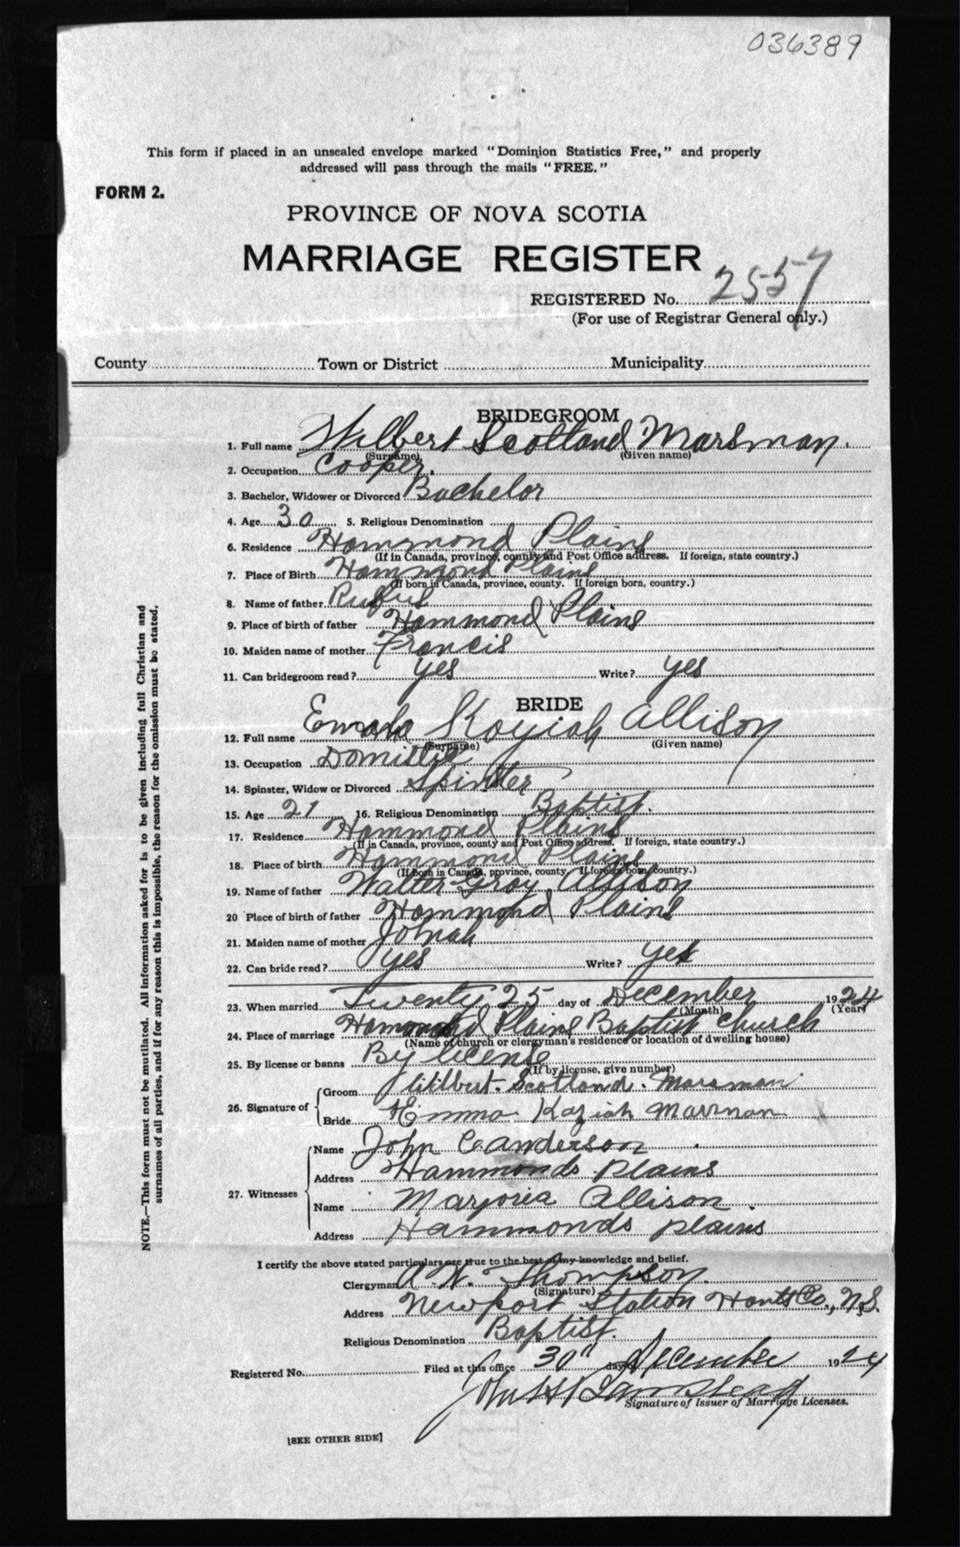 036389
This form if placed in an unsealed envelope marked "Dominion Statistics Free," and properly
addressed will pass through the mails "FREE."
FORM 2.
PROVINCE OF NOVA SCOTIA
MARRIAGE REGISTER
REGISTERED No. 2557
(For use of Registrar General only.)
County Town or District Municipality
BRIDEGROOM
1. Full name Wilbert Scotland Marsman.
(Surname) (Given name)
2. Occupation Cooper.
3. Bachelor, Widower or Divorced Bachelor
4. Age 30 5. Religious Denomination
6. Residence Hammond Plains
(If in Canada, province, county and Post Office address. If foreign, state country.)
7. Place of Birth Hammond Plains
(If born in Canada, province, county. If foreign born, country.)
8. Name of father Rufus
9. Place of birth of father Hammond Plains
10. Maiden name of mother Francis
11. Can bridegroom read? yes Write? yes
BRIDE
12. Full name Allison
(Surname) (Given name)
13. Occupation
14. Spinster, Widow or Divorced Spinster
15. Age 21 16. Religious Denomination Baptist.
17. Residence Hammond Plains
(If in Canada, province, county and Post Office address. If foreign, state country.)
18. Place of birth Hammond Plains
(If born in Canada, province, county. If foreign born country.)
19. Name of father Walter Gray Allison
20 Place of birth of father Hammond Plains
21. Maiden name of mother
22. Can bride read? yes Write? yes
23. When married Twenty 25 day of December 1924
(Month) (Year)
24. Place of marriage Hammond Plains Baptist Church
(Name of church or clergyman's residence or location of dwelling house)
25. By license or banns By license
(If by license, give number)
26. Signature of
Groom Wilbert. Scotland. Marsman.
Bride Emma Keziah Marsman
27. Witnesses
Name John C Anderson
Address Hammonds Plains
Name Marjorie Allison
Address Hammonds plains
I certify the above stated particulars are true to the best of my knowledge and belief.
Clergyman A. W. Thompson.
(Signature)
Address Newport Station Hants Co., N.S.
Religious Denomination Baptist.
Registered No. Filed at this office 30" day December 1924
Signature of Issuer of Marriage Licenses.
[SEE OTHER SIDE]
NOTE.—This form must not be mutilated. All information asked for is to be given including full Christian and
surnames of all parties, and if for any reason this is impossible, the reason for the omission must be stated.